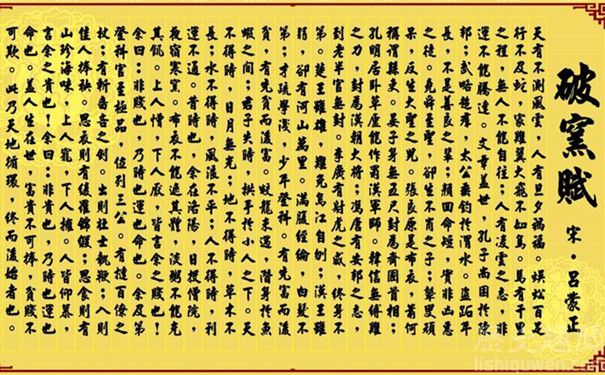 破窯賦
宋 呂蒙正
天有不測風雲，人有旦夕禍福。蜈蚣百足，
行不及蛇，家雞翼大飛不如鳥。馬有千里
之程，無人不能自往；人有凌雲之志，非
運不能騰達。文章蓋世，孔子尚困於陳
邦；武略超群，太公垂釣於渭水。盜跖年
長，不是善良之輩；顏回命短，實非凶惡
之徒。堯舜至聖，卻生不肖之子；瞽叟頑
呆，反生大聖之兒。張良原是布衣，蕭何
稱謂縣吏。晏子身無五尺封為齊國首相；
孔明居卧草廬能作蜀漢軍師。韓信無縛雞
之力，封為漢朝大將；馮唐有安邦之志，
到老半官無封。李廣有射虎之威，終身不
第。楚王雖雄，難免烏江自刎；漢王雖
弱，卻有河山萬里。滿腹經綸，白髮不
第；才疏學淺，少年登科。有先富而後
貧，有先貧而後富。蛟龍未遇，潛身於魚
蝦之間；君子失時，拱手於小人之下。天
不得時，日月無光；地不得時，草木不
長；水不得時，風浪不平；人不得時，利
運不通。昔時也，余在洛陽，日投僧院，
夜宿寒窯。布衣不能遮其體，淡粥不能充
其飢。上人憎，下人厭，皆言余之賤也！
余曰：非賤也 乃時也運也命也。余及第
登科官至極品，位列三公。有撻百僚之
杖；有斬嗇吝之劍。出則壯士執鞭；入則
佳人捧袂。思衣則有綾羅錦緞；思食則有
山珍海味。上人寵，下人擁。人皆仰慕，
言余之貴也！余曰：非貴也，乃時也運也
命也。蓋人生在世，富貴不可捧，貧賤不
可欺。此乃天地循環，終而復始者也。
lishiquwen.com